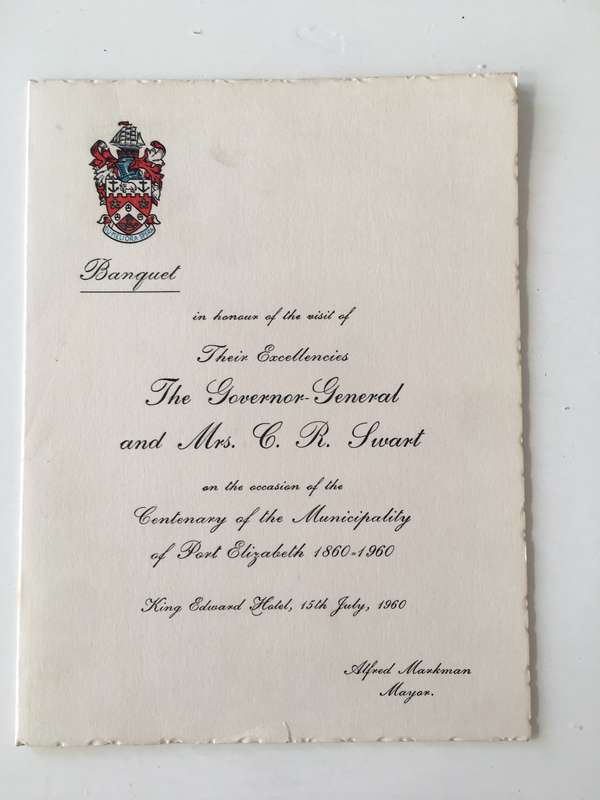 Banquet
in honour of the visit of
Their Excellencies
The Governor-General
and Mrs. C. R. Swart
on the occasion of the
Centenary of the Municipality
of Port Elizabeth 1860-1960
King Edward Hotel, 15th July, 1960
Alfred Markman
Mayor.